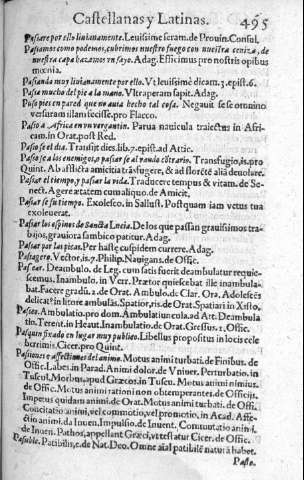 Castellanas y Latinas. 495
Passare por ello liuianamente. Leuissime feram. de Prouin. Consul.
Passamos como podemos, cubrimos nuestro fuego con nuestra ceniza, de
nuestra capa hazemos vn sayo. Adag. Efficimus pro nostris opibus
mœnia.
Passando muy liuianamente por ello. Vt leuissimè dicam. 3. epist. 6.
Passa mucho del pie a la mano. Vltra peram sapit. Adag.
Puso pies en pared que no auia hecho tal cosa. Negauit se se omnino
versuram illam fecisse. pro Flacco.
Passò a Africa en vn vergantin. Parua nauicula traiectus in Afri-
cam. in Orat. post Red.
Passose el dia. Transijt dies. lib. 7. epist. ad Attic.
Passose a los enemigos, o passar se al vando cōtrario. Transfugio, is. pro
Quint. Ab afflicta amicitia trāsfugere, & ad florētē aliā deuolare.
Passar el tiempo, y passar la vida. Traducere tempus & vitam. de Se-
nect. Agere ætatem cum aliquo. de Amicit.
Passar se su tiempo. Exolesco. in Sallust. Postquam iam vetus tua
exoleuerat.
Passar los espinos de Sancta Lucia. De los que passan grauissimos tra-
bajos, grauiora sambico patitur. Adag.
Passar por las picas. Per hastę cuspidem currere. Adag.
Passagero. Vector, is. 7. Philip. Nauigans. de Offic.
Passear. Deambulo. de Leg. cum satis fuerit deambulatum requie-
scemus. Inambulo. in Verr. Prætor quiescebat ille inambula-
bat. Facere gradū. 2. de Orat. Ambulo. de Clar. Ora. Adolescēs
delicat⁹ in litore ambulās. Spatior, is. de Orat. Spatiari in Xisto.
Passeo. Ambulatio. pro dom. Ambulatiuncula. ad Att. Deambula
tio. Terent. in Heaut. Inambulatio. de Orat. Gressus. 1. Offic.
Pasquin fixado en lugar muy publico. Libellus propositus in locis cele
berrimis. Cicer. pro Quint.
Passiones o affectiones del animo. Motus animi turbati. de Finibus. de
Offic. Labes. in Parad. Animi dolor. de Vniuer. Perturbatio. in
Tuscul. Morbus, apud Græcos. in Tuscu. Motus animi nimius.
de Offic. Motus animi rationi non obtemperantes. de Officijs.
Impetus quidam animi. de Orat. Motus animi turbati. de Offi.
Concitatio animi, vel commotio, vel promotio. in Acad. Affe-
ctio animi. da Inuen. Impulsio. de Inuent. Commutatio animi.
de Inuen. Pathos, appellant Græci, vt testatur Cicer. de Offic.
Passible. Patibilis, e. de Nat. Deo. Omne aīal patibilē naturā habet.
Passo.